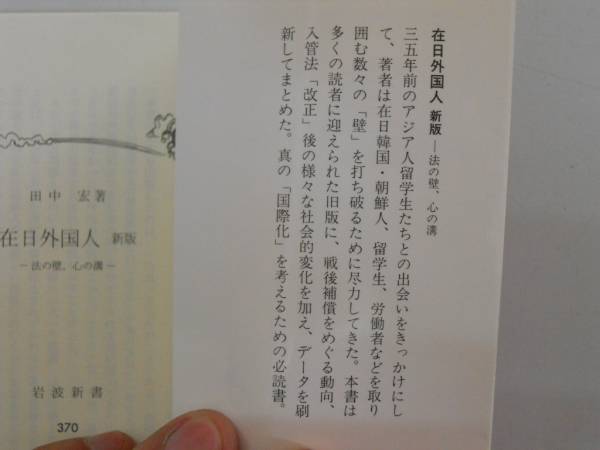 在日外国人 新版―法の壁、心の溝
三五年前のアジア人留学生たちとの出会いをきっかけにし
て、著者は在日韓国・朝鮮人、留学生、労働者などを取り
囲む数々の「壁」を打ち破るために尽力してきた。本書は
多くの読者に迎えられた旧版に、戦後補償をめぐる動向、
入管法「改正」後の様々な社会的変化を加え、データを刷
新してまとめた。真の「国際化」を考えるための必読書。
田中 宏著
在日外国人 新版
―法の壁、心の溝―
岩波新書
370